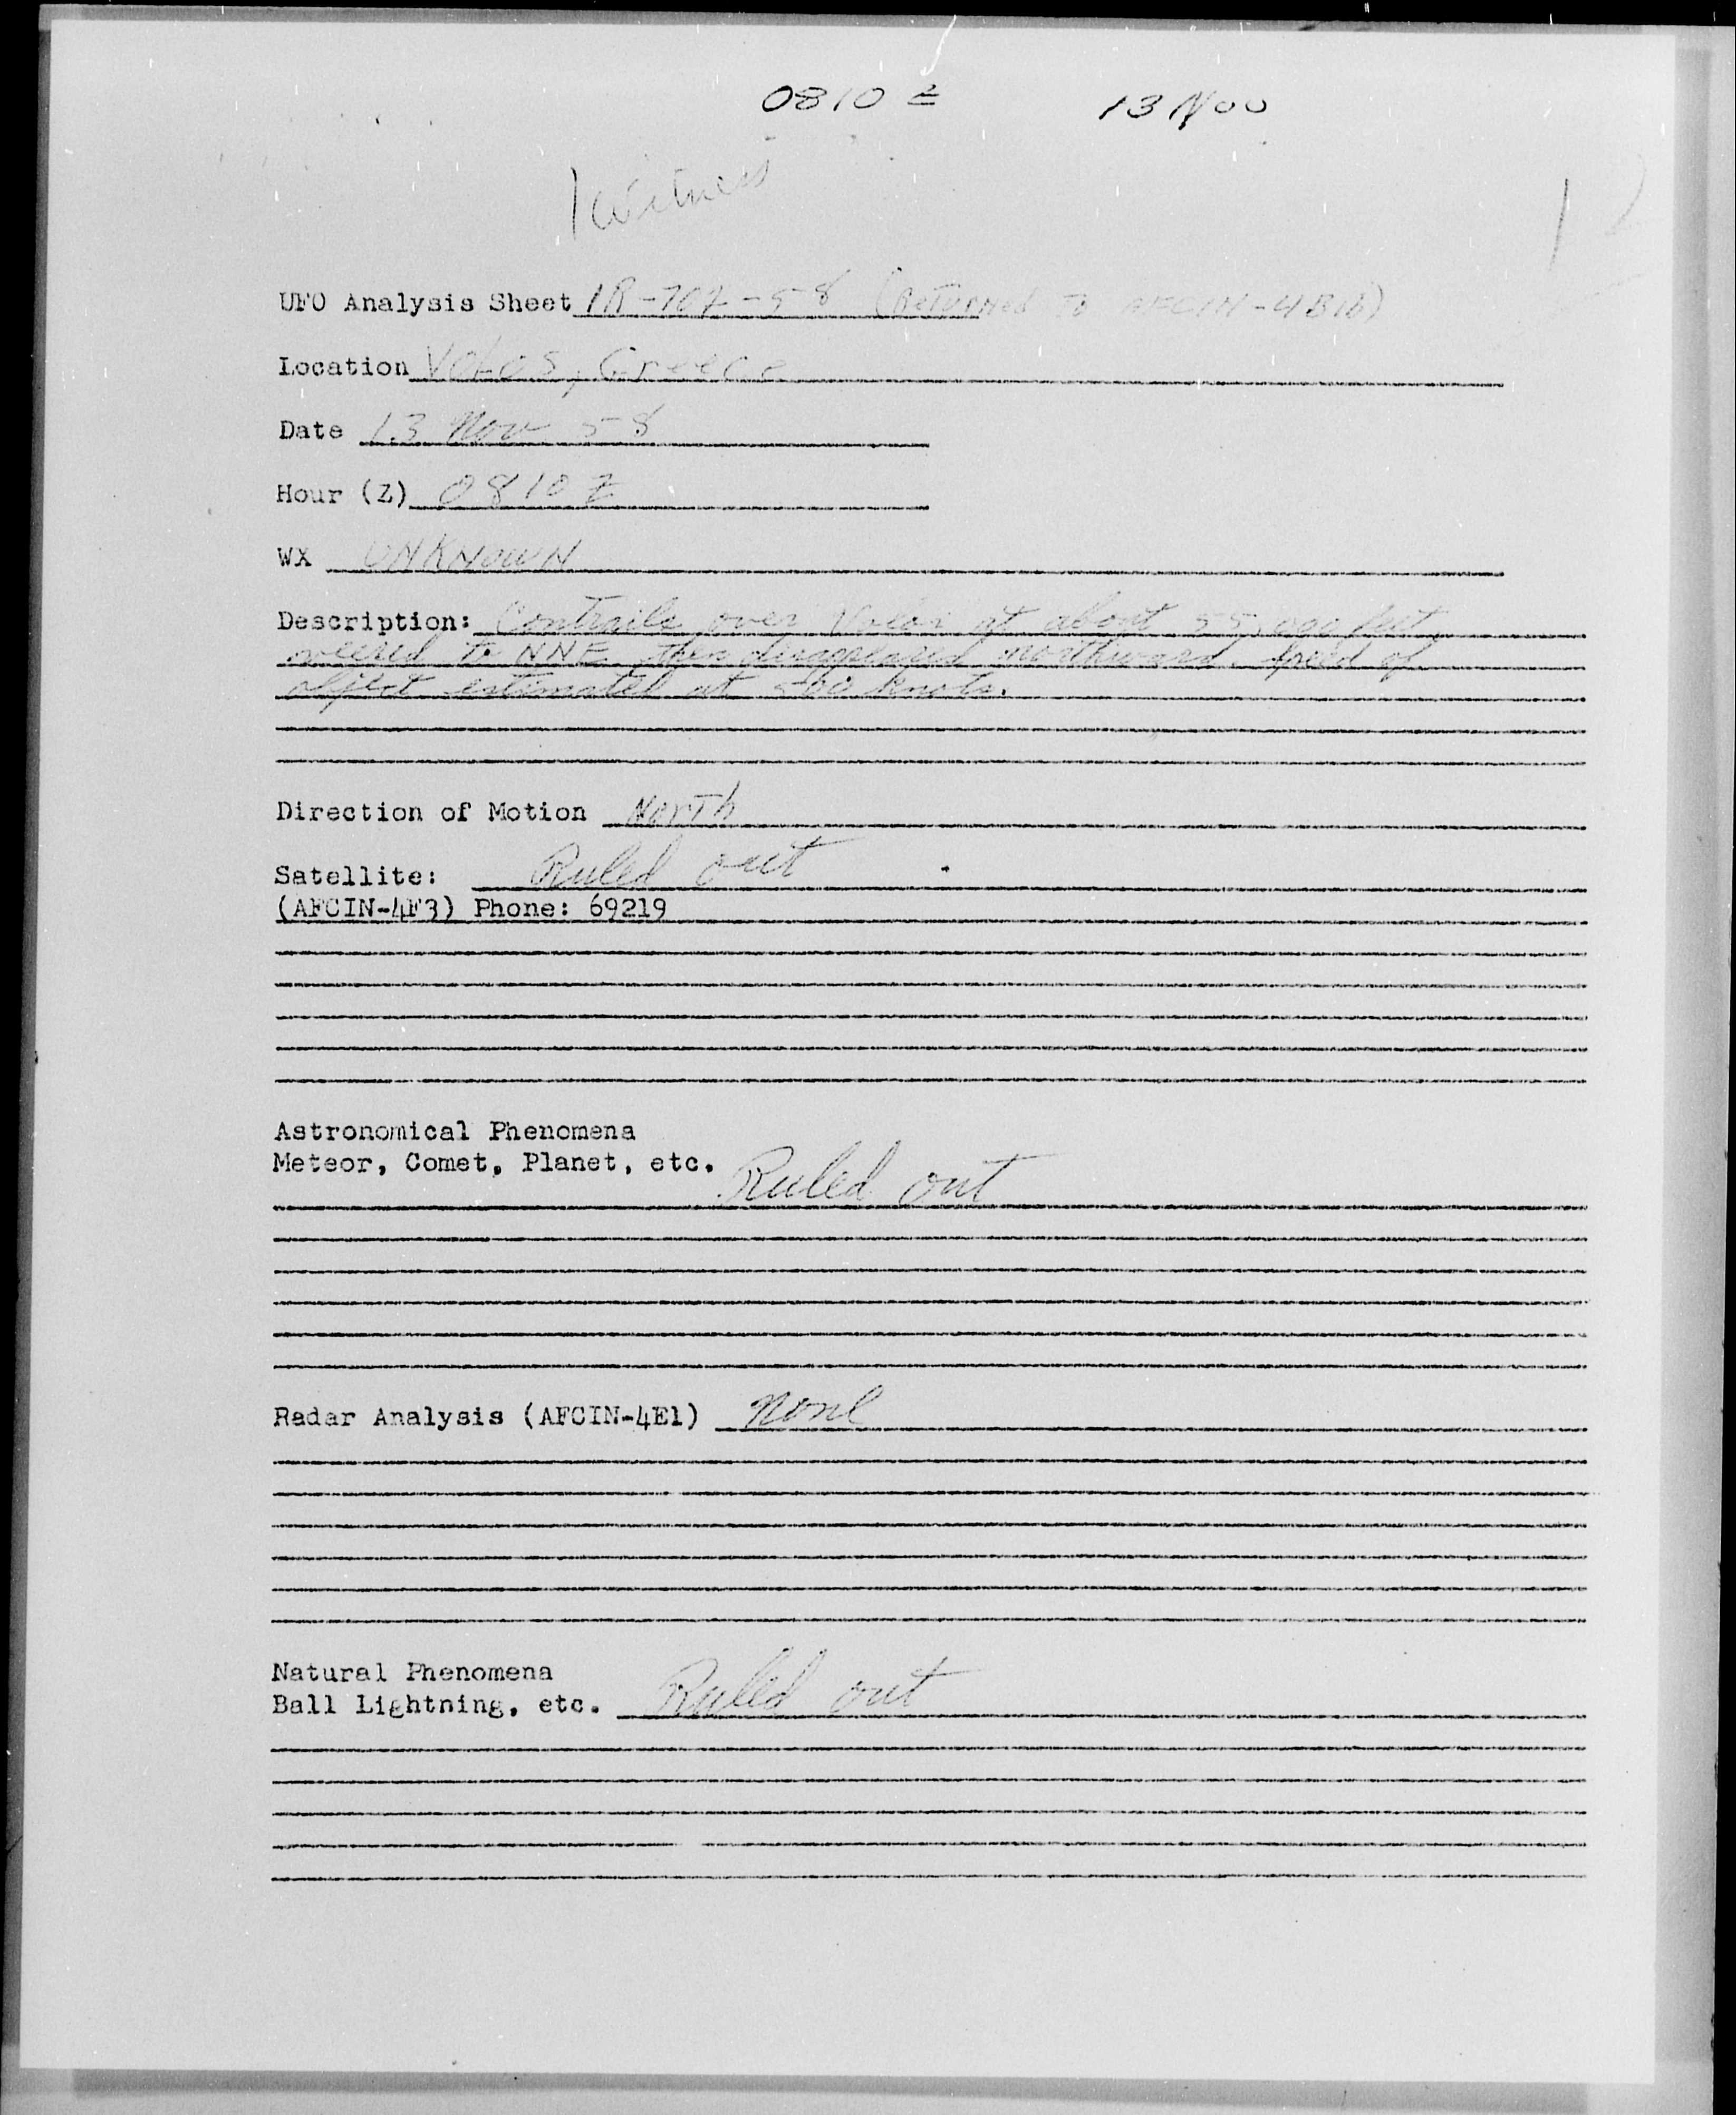 0810 Z 13 Nov
1 witness
UFO Analysis Sheet IR-707-58 (Returned to AFCIN-4B1b)
Location Volos, Greece
Date 13 Nov 58
Hour (Z) 0810 Z
WX UNKNOWN
Description: Contrails over Volos at about 55,000 feet,
veered to NNE then disappeared northward. Speed of
object estimated at knots.
Direction of Motion North
Satellite: Ruled out
(AFCIN-4F3) Phone: 69219
Astronomical Phenomena
Meteor, Comet, Planet, etc. Ruled out
Radar Analysis (AFCIN-4E1) None
Natural Phenomena
Ball Lightning, etc. Ruled out